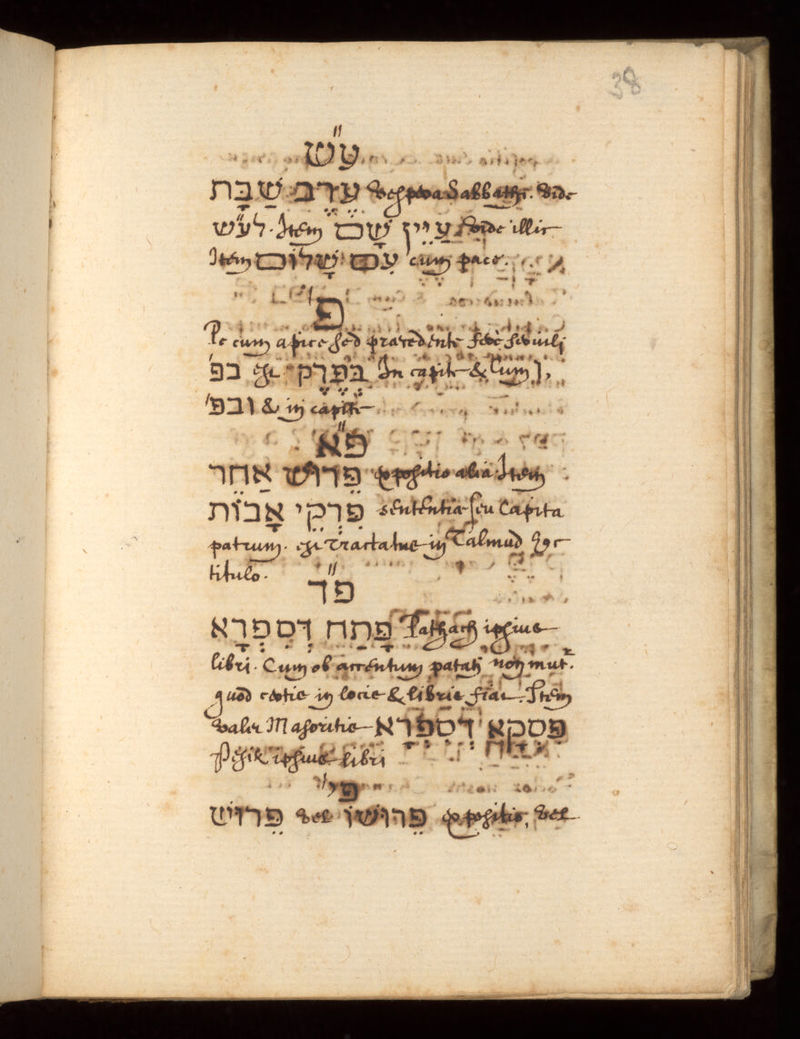 38
ע״ש
עֶרֶב שַׁבָּת Vespera Sabbathi. Vide
לע״ש. Item עַיֵּין שָׁם Vide illic
Item עִם שָׁלוֹם cum pace.
פ׳
Pe cum apice sed praecedente
בפ׳ est בְּפֶרֶק In capite & cum ו,
ובפ׳ & in capite
פ״א
פֵּרוּשׁ אַחֵר expositio alia Item
פִּרְקֵי אָבוֹת sententiae seu Capita
patrum. est Tractatus in Talmud hoc
titulo.
פ״ד
פָּתַח דְּסִפְרָא Pathach ipsius
libri. Cum ob accentum patah non mut.
quod certis in locis & libris fiat. Item
valet Masoritis פסקא דספרא
Pesik ipsius libri
פי׳
פֵּרוּשׁ vel פֵּרוּשׁוֹ expositio, vel